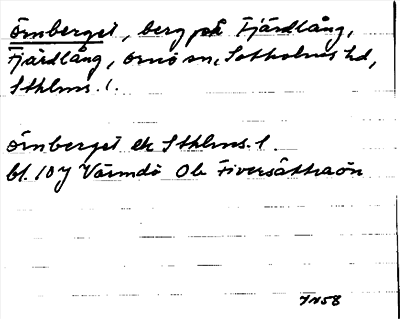 Örnberget, berg på Fjärdlång,
Fjärdlång, Ornö sn, Sotholms hd,
Sthlms. l.
Örnberget ek Sthlms. l.
bl. 10 J Värmdö Ob Fiversätraön